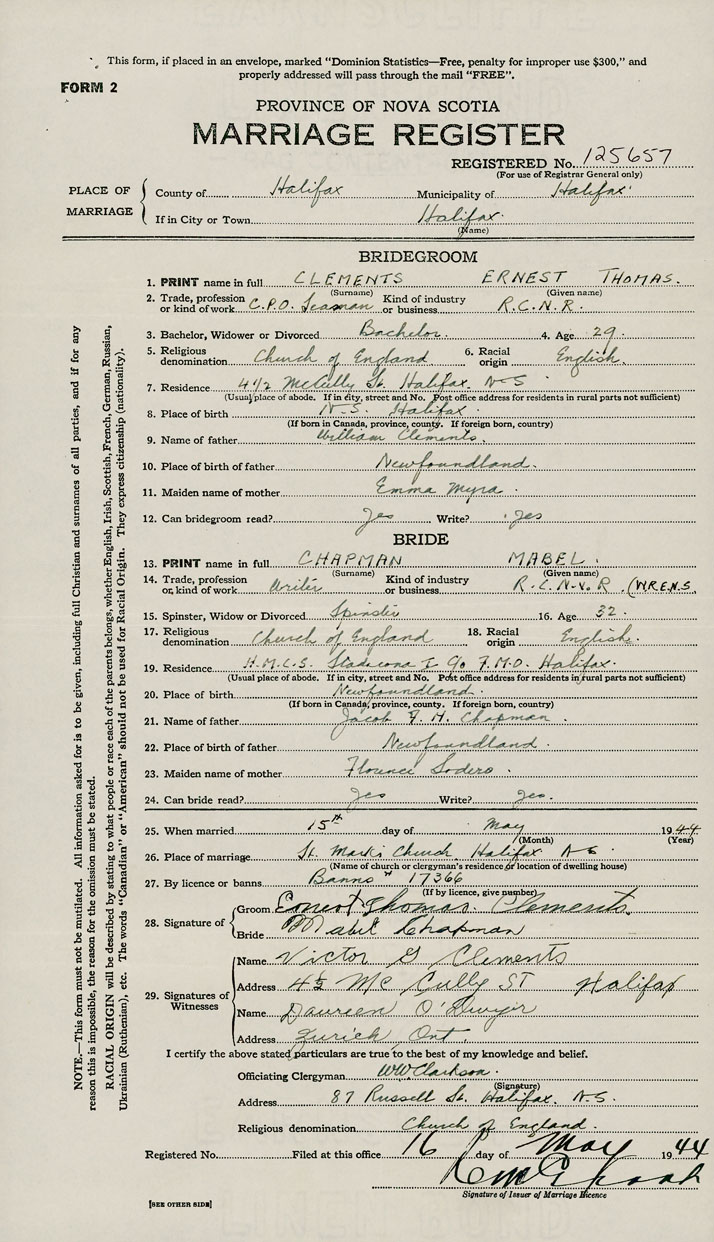 This form, if placed in an envelope, marked "Dominion Statistics—Free, penalty for improper use $300," and
properly addressed will pass through the mail "FREE".
FORM 2
PROVINCE OF NOVA SCOTIA
MARRIAGE REGISTER
REGISTERED No. 125657
(For use of Registrar General only)
PLACE OF MARRIAGE
County of Halifax Municipality of Halifax
If in City or Town Halifax
(Name)
BRIDEGROOM
1. PRINT name in full CLEMENTS ERNEST THOMAS.
(Surname) (Given name)
2. Trade, profession or kind of work C.P.O. Seaman Kind of industry or business R.C.N.R.
3. Bachelor, Widower or Divorced Bachelor. 4. Age 29.
5. Religious denomination Church of England 6. Racial origin English.
7. Residence 4 1/2 McCully St. Halifax. N-S
(Usual place of abode. If in city, street and No. Post office address for residents in rural parts not sufficient)
8. Place of birth N.S. Halifax.
(If born in Canada, province, county. If foreign born, country)
9. Name of father William Clements.
10. Place of birth of father Newfoundland.
11. Maiden name of mother Emma Myra.
12. Can bridegroom read? Yes Write? Yes
BRIDE
13. PRINT name in full CHAPMAN MABEL.
(Surname) (Given name)
14. Trade, profession or kind of work Writer Kind of industry or business R.C.N.V.R. (W.R.E.N.S.
15. Spinster, Widow or Divorced Spinster 16. Age 32.
17. Religious denomination Church of England 18. Racial origin English.
19. Residence H.M.C.S. Stadacona I c/o F.M.O. Halifax.
(Usual place of abode. If in city, street and No. Post office address for residents in rural parts not sufficient)
20. Place of birth Newfoundland.
(If born in Canada, province, county. If foreign born, country)
21. Name of father Jacob F. H. Chapman.
22. Place of birth of father Newfoundland.
23. Maiden name of mother Florence
24. Can bride read? Yes Write? Yes.
25. When married 15th day of May 1944
(Month) (Year)
26. Place of marriage St. Mark's Church, Halifax N S
(Name of church or clergyman's residence or location of dwelling house)
27. By licence or banns Banns 17366
(If by licence, give number)
28. Signature of
Groom Ernest Thomas Clements.
Bride Mabel Chapman
29. Signatures of Witnesses
Name Victor G Clements
Address 4 1/2 Mc Cully ST Halifax
Name Daureen O'Dwyer
Address Zurich Ont.
I certify the above stated particulars are true to the best of my knowledge and belief.
Officiating Clergyman WW Clarkson.
(Signature)
Address 87 Russell St. Halifax. N.S.
Religious denomination Church of England.
Registered No. Filed at this office 16 day of May 1944
Signature of Issuer of Marriage Licence
[SEE OTHER SIDE]
NOTE.—This form must not be mutilated. All information asked for is to be given, including full Christian and surnames of all parties, and if for any
reason this is impossible, the reason for the omission must be stated.
RACIAL ORIGIN will be described by stating to what people or race each of the parents belongs, whether English, Irish, Scottish, French, German, Russian,
Ukrainian (Ruthenian), etc. The words "Canadian" or "American" should not be used for Racial Origin. They express citizenship (nationality).